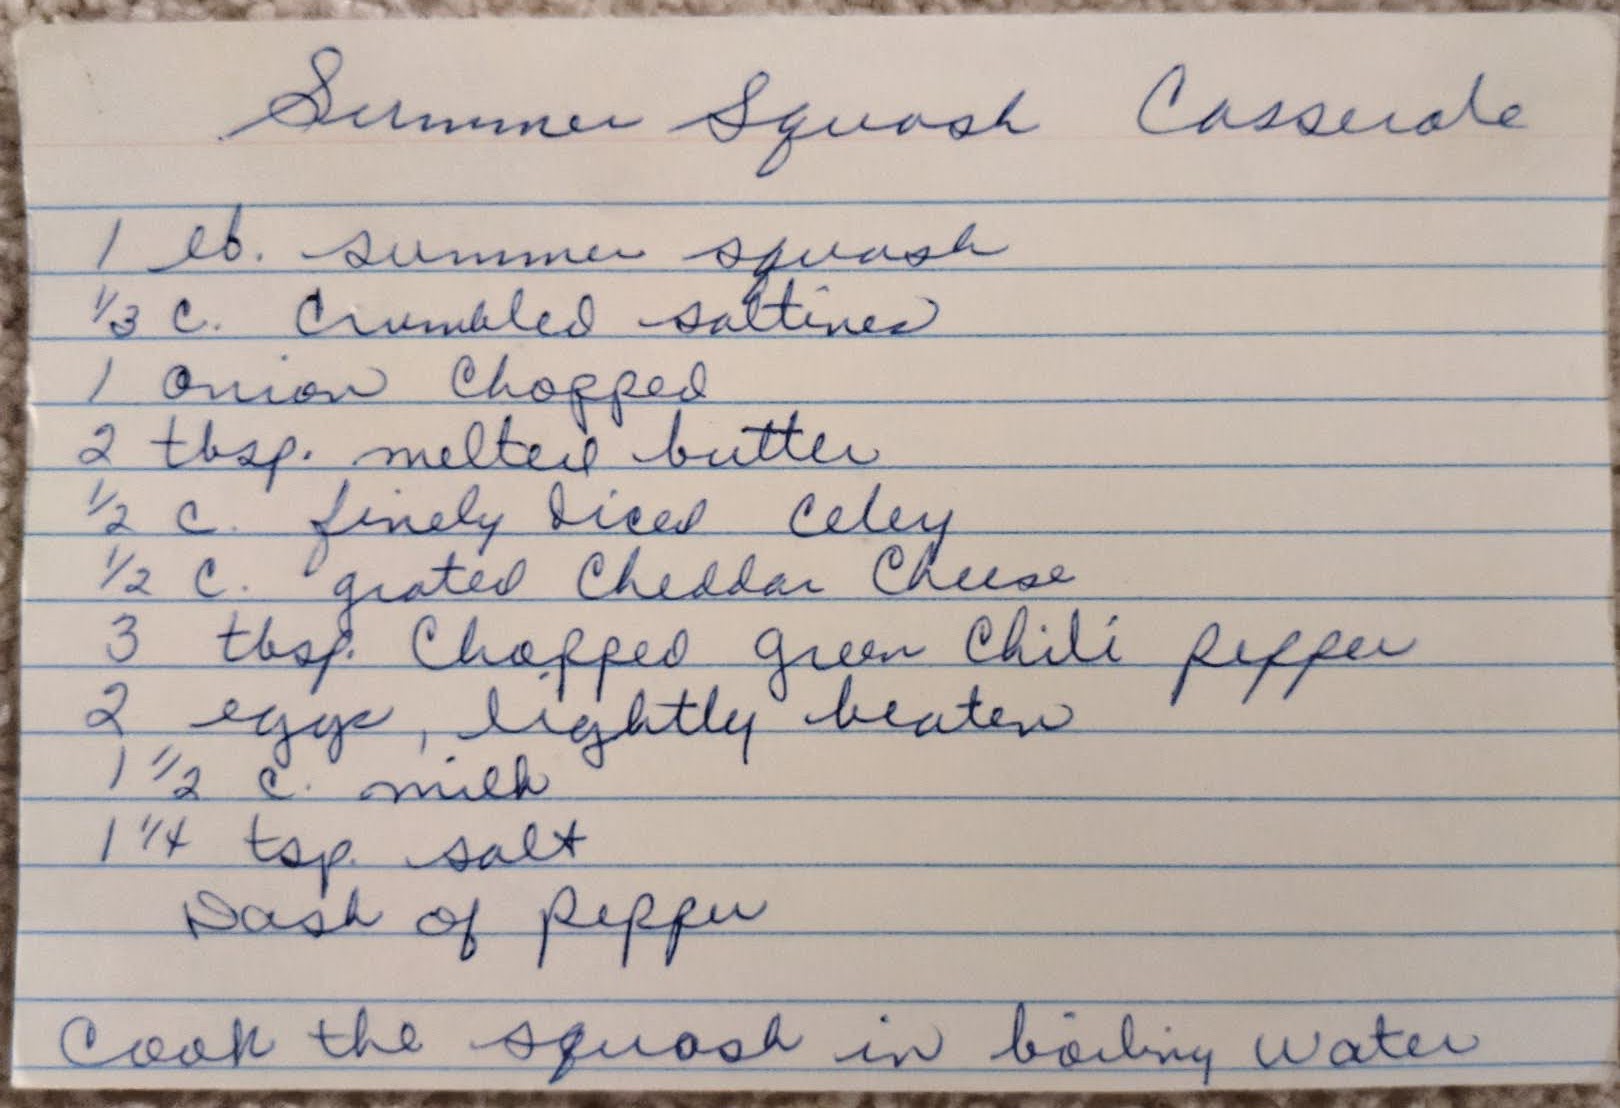 Summer Squash Casserole
1 lb. summer squash
1/3 c. Crumbled saltines
1 onion Chopped
2 tbsp. melted butter
1/2 c. finely diced Celey
1/2 c. grated Cheddar Cheese
3 tbsp. Chopped green Chili pepper
2 eggs, lightly beaten
1 1/2 c. milk
1 1/4 tsp. salt
Dash of pepper
Cook the squash in boiling water